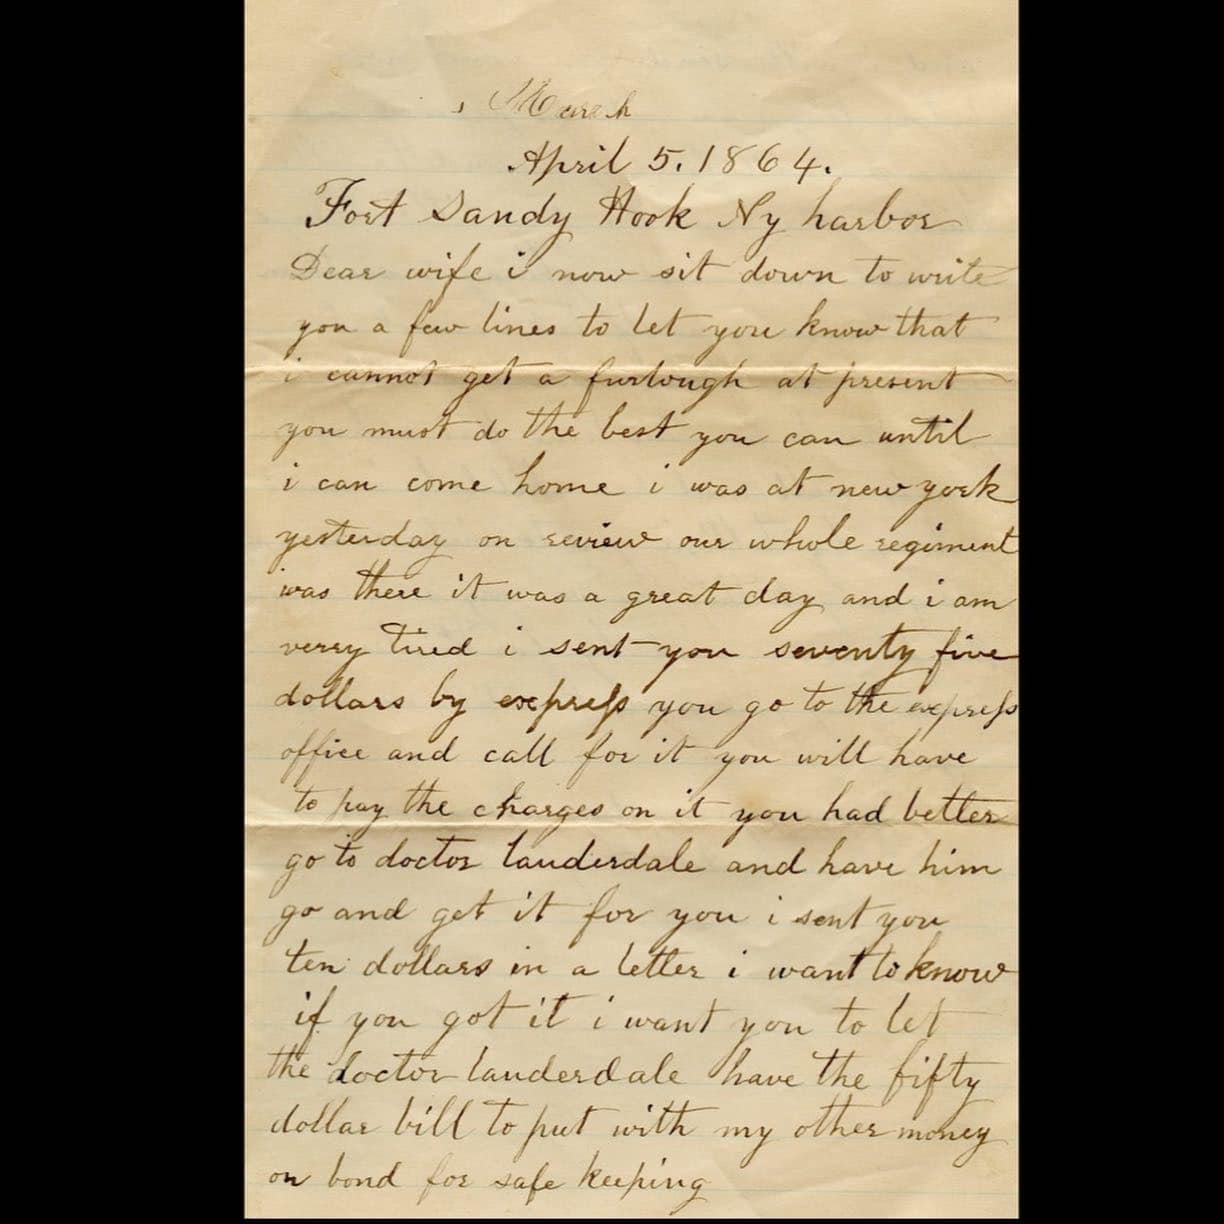 March
April 5. 1864.
Fort Sandy Hook Ny harbor
Dear wife i now sit down to write
you a few lines to let you know that
i cannot get a furlough at present
you must do the best you can until
i can come home i was at new york
yesterday on review our whole regiment
was there it was a great day and i am
verry tired i sent you seventy five
dollars by express you go to the express
office and call for it you will have
to pay the charges on it you had better
go to doctor lauderdale and have him
go and get it for you i sent you
ten dollars in a letter i want to know
if you got it i want you to let
the doctor lauderdale have the fifty
dollar bill to put with my other money
on bond for safe keeping